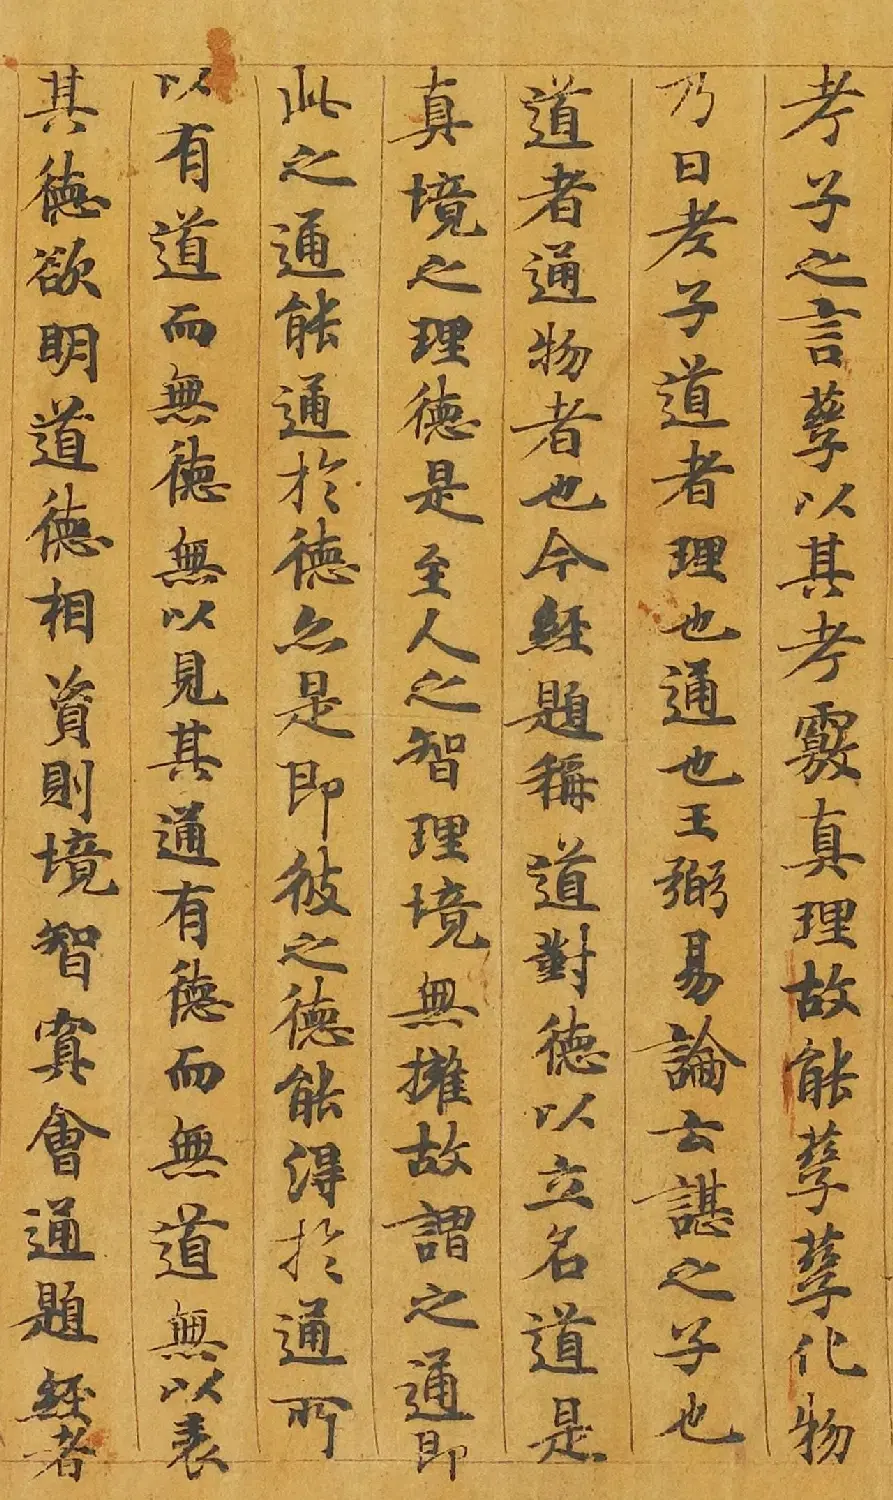 考子之言孳以其考覈真理故能孳孳化物
乃曰老子道者理也通也王弼易論云諶之子也
道者通物者也今經題稱道對德以立名道是
真境之理德是至人之智理境無擁故謂之通即
此之通能通於德亦是即彼之德能得於通所
以有道而無德無以見其通有德而無道無以表
其德欲明道德相資則境智冥會通題經者